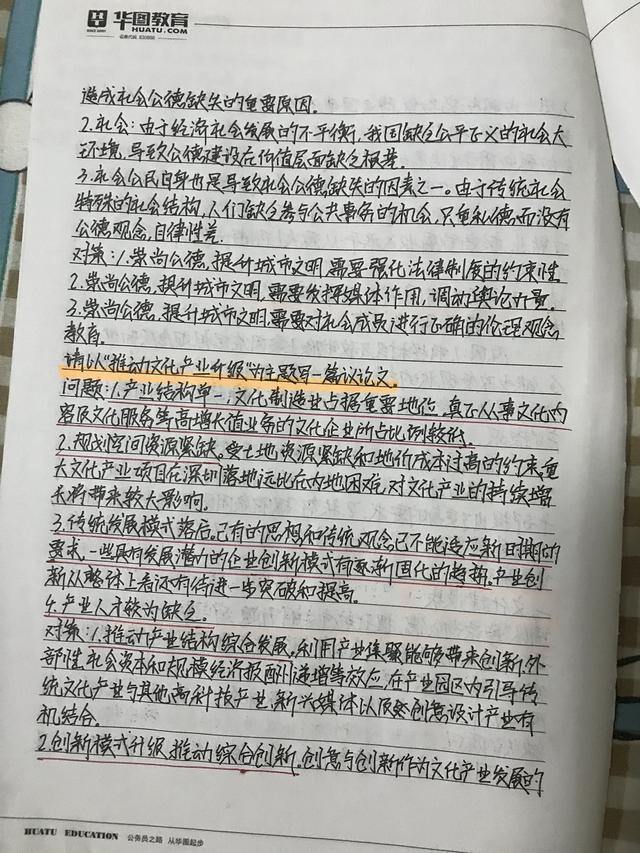 华图教育
HUATU.COM
造成社会公德缺失的重要原因。
2.社会:由于经济社会发展的不平衡,我国缺乏公平正义的社会大
环境,导致公德建设在价值层面缺乏根基。
3.社会公民自身也是导致社会公德缺失的因素之一。由于传统社会
特殊的社会结构,人们缺乏参与公共事务的机会,只重私德而没有
公德观念,自律性差.
对策:1.崇尚公德,提升城市文明,需要强化法律制度的约束性
2.崇尚公德,提升城市文明,需要发挥媒体作用,调动舆论力量.
3.崇尚公德,提升城市文明,需要对社会成员进行正确的伦理观念
教育.
请以“推动文化产业升级”为主题写一篇议论文。
问题:1.产业结构单一,文化制造业占据重要地位,真正从事文化内
容及文化服务等高增长值业务的文化企业所占比例较低.
2.规划空间资源紧缺.受土地资源紧缺和地价成本过高的约束,重
大文化产业项目在深圳落地远比在内地困难,对文化产业的持续增
长将带来较大影响.
3.传统发展模式落后.已有的思想和传统观念已不能适应新时期的
要求,一些具有发展潜力的企业创新模式有逐渐固化的趋势,产业创
新从整体上看还有待进一步突破和提高.
4.产业人才较为缺乏.
对策:1.推动产业结构综合发展,利用产业集聚能够带来创新、外
部性、社会资本和规模经济报酬递增等效应,在产业园区内引导传
统文化产业与其他高科技产业,新兴媒体以及创意设计产业有
机结合.
2.创新模式升级,推动综合创新.创意与创新作为文化产业发展的
HUATU EDUCATION 公务员之路 从华图起步